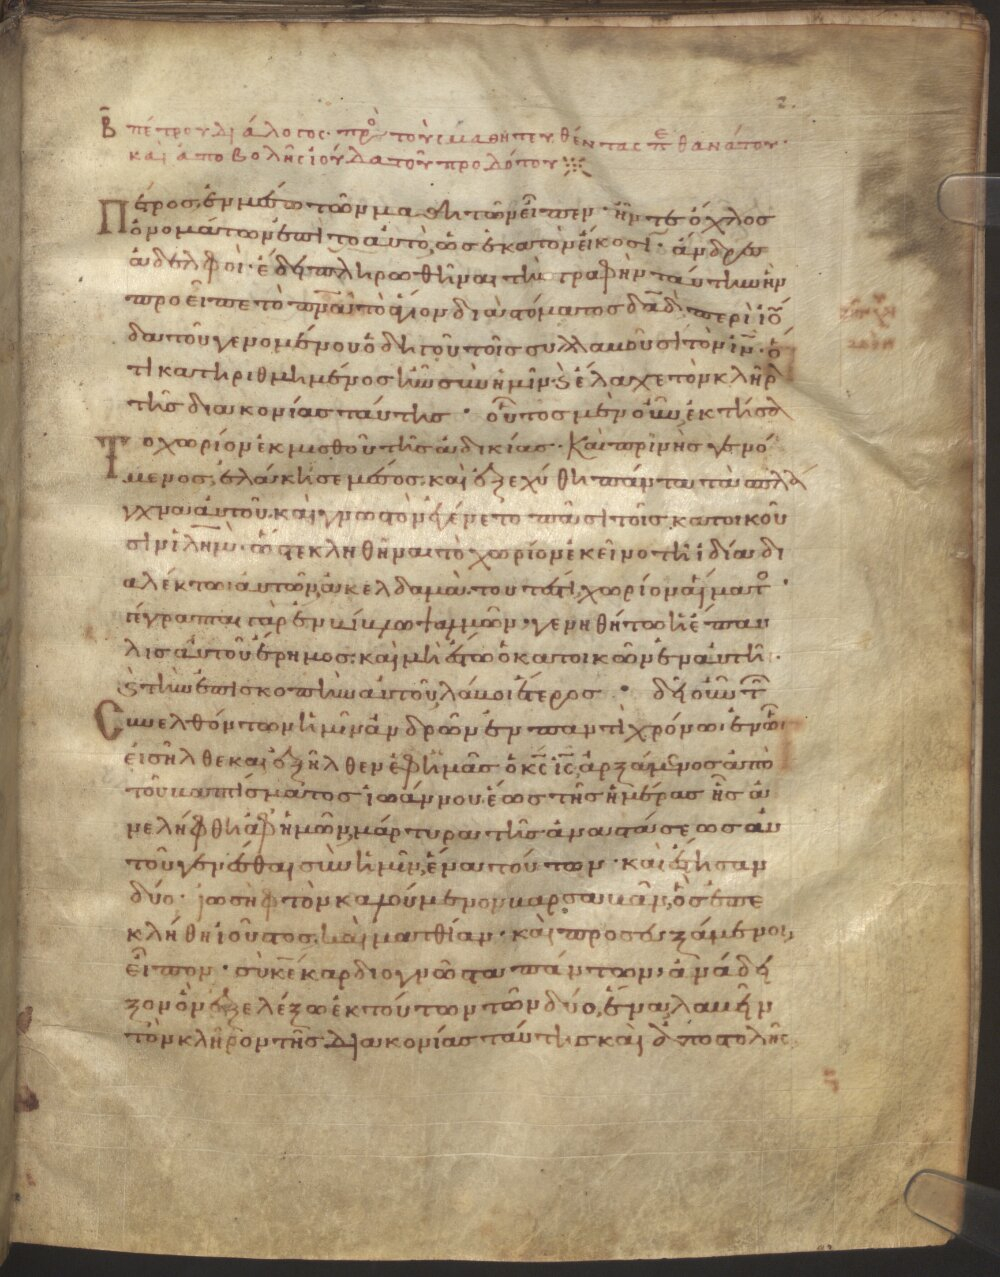 2.
Β πέτρου διάλογος· πρὸς τοὺς μαθητευθέντας π θανάτου·
καὶ ἀποβολῆς ἰούδα τοῦ προδότου
Πέτρος, ἐν μέσω τῶν μαθητῶν εἶπεν· ἦν τε ὄχλος
ὀνομάτων ἐπὶ τὸ αὐτὸ, ὡς ἑκατὸν εἴκοσι· ἄνδρες
ἀδελφοὶ· ἔδει πληρωθῆναι τὴν γραφὴν ταύτην ἣν
προεῖπε τὸ πνᾶ τὸ ἅγιον διὰ στόματος δαδ περὶ ἰού
δα τοῦ γενομένου ὁδηγοῦ τοῖς συλλαβοῦσι τὸν ἰν· ὅ
τι κατηριθμημένος ἦν σὺν ἡμῖν· ϗ ἔλαχε τὸν κλῆρ
τῆς διακονίας ταύτης· οὗτος μὲν οὖν ἐκτήσα
Το χωρίον ἐκ μισθοῦ τῆς ἀδικίας· Καὶ πρινὴς γενό
μενος, ἐλάκησε μέσος· καὶ ἐξεχύθη πάντα τὰ σπλά
γχνα αὐτοῦ. καὶ γνωστὸν ἐγένετο πᾶσι τοῖς κατοικοῦ
σιν ἱλημ· ὥστε κληθῆναι τὸ χωρίον ἐκεῖνο τῆ ἰδία δι
αλέκτω αὐτῶν, ἀκελδαμὰ· τουτέστι, χωρίον αἵματος·
γέγραπται γὰρ ἐν βίβλω ψαλμῶν· γενηθήτω ἡ ἔπαυ
λις αὐτοῦ ἔρημος· καὶ μὴ ἔστω ὁ κατοικῶν ἐν αὐτῆ·
ϗ τὴν ἐπισκοπὴν αὐτοῦ λάβοι ἕτερος· δεῖ οὖν τῶν
Συνελθόντων ἡμῖν ἀνδρῶν ἐν παντὶ χρόνω ἐν ὧ
εἰσῆλθε καὶ ἐξῆλθεν ἐφ ἡμᾶς ὁ κς ἰς, ἀρξάμενος ἀπὸ
τοῦ βαπτίσματος ἰωάννου ἕως τῆς ἡμέρας ἧς ἀ
νελήφθη ἀφ ἡμῶν, μάρτυρα τῆς ἀναστάσεως αὐ
τοῦ γενέσθαι σὺν ἡμῖν, ἕνα τούτων· καὶ ἔστησαν
δύο· ἰωσὴφ τὸν καλούμενον βαρσαβᾶν, ὃς ἐπε
κλήθη ἰοῦστος. καὶ ματθίαν· καὶ προσευξάμενοι,
εἶπον· σὺ κε καρδιογνῶστα πάντων, ἀνάδει
ξον ὃν ἐξελέξω ἐκ τούτων τῶν δύο, ἕνα, λαβεῖν
τὸν κλῆρον τῆς διακονίας ταύτης καὶ ἀποστολῆς